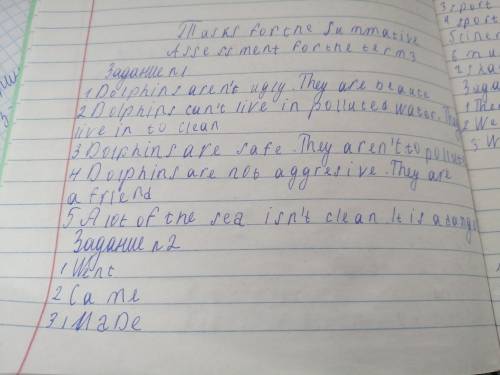 Tasks for the Summative
Assessment for the term 3
Задание №1
1 Dolphins aren't ugly. They are beaute
2 Dolphins can't live in polluted water. They
live in to clean
3 Dolphins are safe. They aren't to pollut
4 Dolphins are not aggresive. They are
a friend
5 A lot of the sea isn't clean It is a dang
Задание №2
1 Went
2 Came
3 Made
3 sport
4 sport